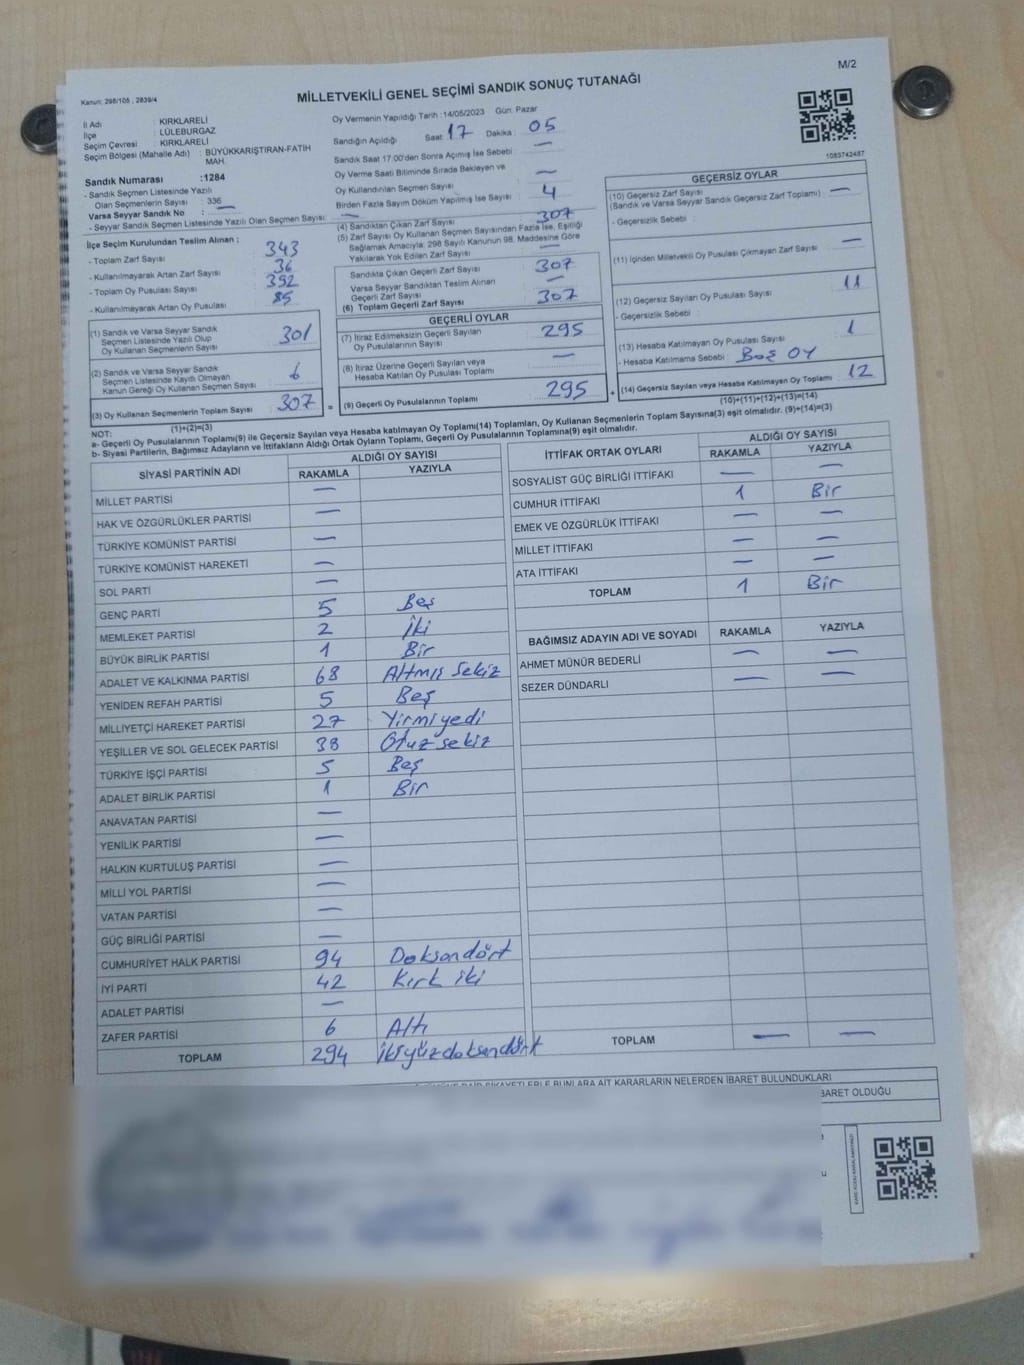 M/2
Kanun: 298/105 , 2839/4
MİLLETVEKİLİ GENEL SEÇİMİ SANDIK SONUÇ TUTANAĞI
İl Adı : KIRKLARELİ
İlçe : LÜLEBURGAZ
Seçim Çevresi : KIRKLARELİ
Seçim Bölgesi (Mahalle Adı) : BÜYÜKKARIŞTIRAN-FATİH MAH.
Sandık Numarası :1284
- Sandık Seçmen Listesinde Yazılı
Olan Seçmenlerin Sayısı : 336
Varsa Seyyar Sandık No : —
- Seyyar Sandık Seçmen Listesinde Yazılı Olan Seçmen Sayısı: —
Oy Vermenin Yapıldığı Tarih :14/05/2023 Gün: Pazar
Sandığın Açıldığı Saat: 17 Dakika : 05
Sandık Saat 17:00'den Sonra Açımış İse Sebebi : —
Oy Verme Saati Bitiminde Sırada Bekleyen ve
Oy Kullandırılan Seçmen Sayısı —
Birden Fazla Sayım Döküm Yapılmış İse Sayısı : 4
1083742487
İlçe Seçim Kurulundan Teslim Alınan :
- Toplam Zarf Sayısı 343
- Kullanılmayarak Artan Zarf Sayısı 36
- Toplam Oy Pusulası Sayısı 392
- Kullanılmayarak Artan Oy Pusulası 85
(1) Sandık ve Varsa Seyyar Sandık
Seçmen Listesinde Yazılı Olup
Oy Kullanan Seçmenlerin Sayısı 301
(2) Sandık ve Varsa Seyyar Sandık
Seçmen Listesinde Kayıtlı Olmayan
Kanun Gereği Oy Kullanan Seçmen Sayısı 6
(3) Oy Kullanan Seçmenlerin Toplam Sayısı 307 =
(1)+(2)=(3)
(4) Sandıktan Çıkan Zarf Sayısı 307
(5) Zarf Sayısı Oy Kullanan Seçmen Sayısından Fazla İse, Eşitliği
Sağlamak Amacıyla; 298 Sayılı Kanunun 98. Maddesine Göre
Yakılarak Yok Edilen Zarf Sayısı —
Sandıkta Çıkan Geçerli Zarf Sayısı 307
Varsa Seyyar Sandıktan Teslim Alınan
Geçerli Zarf Sayısı —
(6) Toplam Geçerli Zarf Sayısı 307
GEÇERLİ OYLAR
(7) İtiraz Edilmeksizin Geçerli Sayılan
Oy Pusulalarının Sayısı 295
(8) İtiraz Üzerine Geçerli Sayılan veya
Hesaba Katılan Oy Pusulası Toplamı —
(9) Geçerli Oy Pusulalarının Toplamı 295 +
GEÇERSİZ OYLAR
(10) Geçersiz Zarf Sayısı —
(Sandık ve Varsa Seyyar Sandık Geçersiz Zarf Toplamı)
- Geçersizlik Sebebi :
(11) İçinden Milletvekili Oy Pusulası Çıkmayan Zarf Sayısı —
(12) Geçersiz Sayılan Oy Pusulası Sayısı 11
- Geçersizlik Sebebi :
(13) Hesaba Katılmayan Oy Pusulası Sayısı 1
- Hesaba Katılmama Sebebi : Boş OY
(14) Geçersiz Sayılan veya Hesaba Katılmayan Oy Toplamı 12
(10)+(11)+(12)+(13)=(14)
NOT:
a- Geçerli Oy Pusulalarının Toplamı(9) ile Geçersiz Sayılan veya Hesaba katılmayan Oy Toplamı(14) Toplamları, Oy Kullanan Seçmenlerin Toplam Sayısına(3) eşit olmalıdır. (9)+(14)=(3)
b- Siyasi Partilerin, Bağımsız Adayların ve İttifakların Aldığı Ortak Oyların Toplamı, Geçerli Oy Pusulalarının Toplamına(9) eşit olmalıdır.
SİYASİ PARTİNİN ADI ALDIĞI OY SAYISI
RAKAMLA YAZIYLA
MİLLET PARTİSİ —
HAK VE ÖZGÜRLÜKLER PARTİSİ —
TÜRKİYE KOMÜNİST PARTİSİ —
TÜRKİYE KOMÜNİST HAREKETİ —
SOL PARTİ —
GENÇ PARTİ 5 Beş
MEMLEKET PARTİSİ 2 İki
BÜYÜK BİRLİK PARTİSİ 1 Bir
ADALET VE KALKINMA PARTİSİ 68 Altmış Sekiz
YENİDEN REFAH PARTİSİ 5 Beş
MİLLİYETÇİ HAREKET PARTİSİ 27 Yirmiyedi
YEŞİLLER VE SOL GELECEK PARTİSİ 38 Otuz sekiz
TÜRKİYE İŞÇİ PARTİSİ 5 Beş
ADALET BİRLİK PARTİSİ 1 Bir
ANAVATAN PARTİSİ —
YENİLİK PARTİSİ —
HALKIN KURTULUŞ PARTİSİ —
MİLLİ YOL PARTİSİ —
VATAN PARTİSİ —
GÜÇ BİRLİĞİ PARTİSİ —
CUMHURİYET HALK PARTİSİ 94 Doksandört
İYİ PARTİ 42 Kırk iki
ADALET PARTİSİ —
ZAFER PARTİSİ 6 Altı
TOPLAM 294 İkiyüzdoksandört
İTTİFAK ORTAK OYLARI ALDIĞI OY SAYISI
RAKAMLA YAZIYLA
SOSYALİST GÜÇ BİRLİĞİ İTTİFAKI — —
CUMHUR İTTİFAKI 1 Bir
EMEK VE ÖZGÜRLÜK İTTİFAKI — —
MİLLET İTTİFAKI — —
ATA İTTİFAKI — —
TOPLAM 1 Bir
BAĞIMSIZ ADAYIN ADI VE SOYADI RAKAMLA YAZIYLA
AHMET MÜNÜR BEDERLİ — —
SEZER DÜNDARLI — —
TOPLAM — —
KARARLARIN NELERDEN İBARET BULUNDUKLARI
BARET OLDUĞU